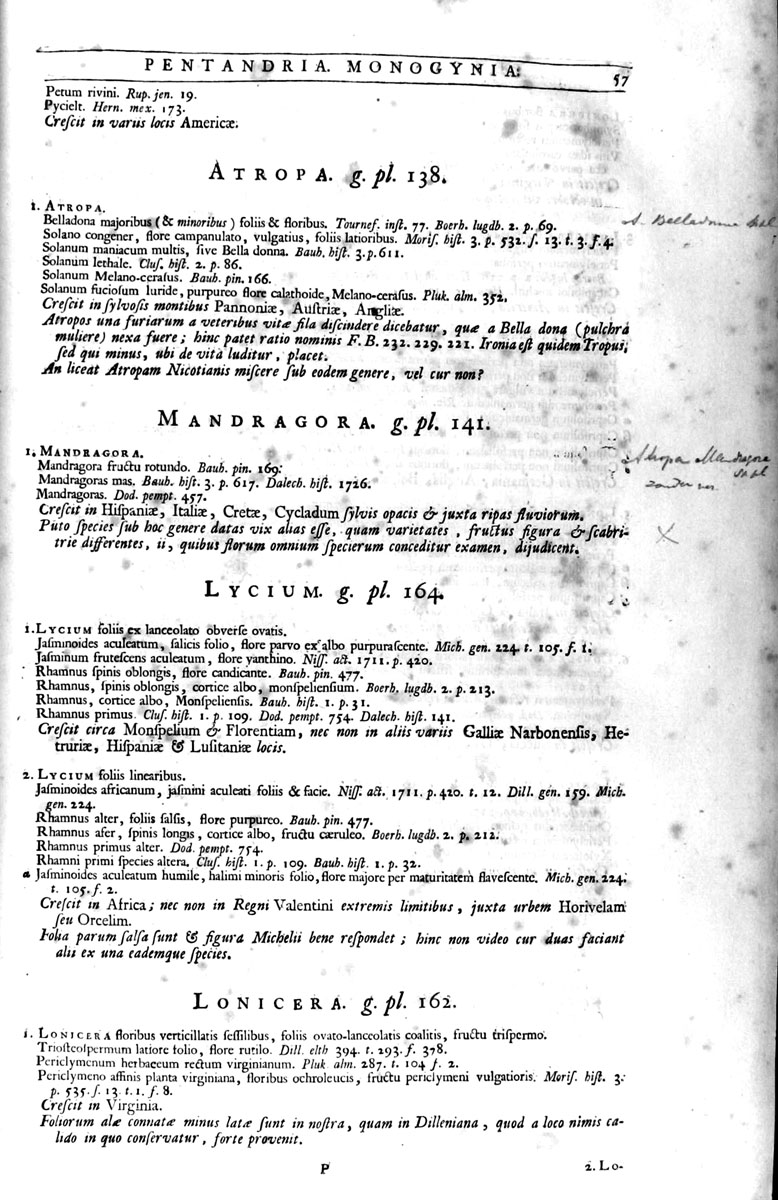 PENTANDRIA. MONOGYNIA.
57
Petum rivini. Rup. jen. 19.
Pycielt. Hern. mex. 173.
Creſcit in variis locis Americæ.
ATROPA. g. pl. 138.
1. ATROPA.
Belladona majoribus (& minoribus) foliis & floribus. Tournef. inſt. 77. Boerh. lugdb. 2. p. 69.
A. Belladonna
Solano congener, flore campanulato, vulgatius, foliis latioribus. Moriſ. hiſt. 3. p. 532. ſ. 13. t. 3. f. 4.
Solanum maniacum multis, ſive Bella donna. Bauh. hiſt. 3. p. 611.
Solanum lethale. Cluſ. hiſt. 2. p. 86.
Solanum Melano-ceraſus. Bauh. pin. 166.
Solanum fucioſum luride, purpureo flore calathoide, Melano-ceraſus. Pluk. alm. 352.
Creſcit in ſylvoſis montibus Pannoniæ, Auſtriæ, Angliæ.
Atropos una furiarum a veteribus vitæ fila diſcindere dicebatur, quæ a Bella dona (pulchra
muliere) nexa fuere; hinc patet ratio nominis F. B. 232. 229. 221. Ironia eſt quidem Tropus,
ſed qui minus, ubi de vita luditur, placet.
An liceat Atropam Nicotianis miſcere ſub eodem genere, vel cur non?
MANDRAGORA. g. pl. 141.
1. MANDRAGORA.
Atropa Mandragora
Mandragora fructu rotundo. Bauh. pin. 169.
Mandragoras mas. Bauh. hiſt. 3. p. 617. Dalech. hiſt. 1726.
Mandragoras. Dod. pempt. 457.
Creſcit in Hiſpaniæ, Italiæ, Cretæ, Cycladum ſylvis opacis & juxta ripas fluviorum.
Puto ſpecies ſub hoc genere datas vix alias eſſe, quam varietates, fructus figura & ſcabri-
X
trie differentes, ii, quibus florum omnium ſpecierum conceditur examen, dijudicent.
LYCIUM. g. pl. 164.
1. LYCIUM foliis ex lanceolato obverſe ovatis.
Jaſminoides aculeatum, ſalicis folio, flore parvo ex albo purpuraſcente. Mich. gen. 224. t. 105. f. 1.
Jaſminum fruteſcens aculeatum, flore yanthino. Niſſ. act. 1711. p. 420.
Rhamnus ſpinis oblongis, flore candicante. Bauh. pin. 477.
Rhamnus, ſpinis oblongis, cortice albo, monſpelienſium. Boerh. lugdb. 2. p. 213.
Rhamnus, cortice albo, Monſpelienſis. Bauh. hiſt. 1. p. 31.
Rhamnus primus. Cluſ. hiſt. 1. p. 109. Dod. pempt. 754. Dalech. hiſt. 141.
Creſcit circa Monſpelium & Florentiam, nec non in aliis variis Galliæ Narbonenſis, He-
truriæ, Hiſpaniæ & Luſitaniæ locis.
2. LYCIUM foliis linearibus.
Jaſminoides africanum, jaſmini aculeati foliis & facie. Niſſ. act. 1711. p. 420. t. 12. Dill. gen. 159. Mich.
gen. 224.
Rhamnus alter, foliis ſalſis, flore purpureo. Bauh. pin. 477.
Rhamnus afer, ſpinis longis, cortice albo, fructu cæruleo. Boerh. lugdb. 2. p. 212.
Rhamnus primus alter. Dod. pempt. 754.
Rhamni primi ſpecies altera. Cluſ. hiſt. 1. p. 109. Bauh. hiſt. 1. p. 32.
α Jaſminoides aculeatum humile, halimi minoris folio, flore majore per maturitatem flaveſcente. Mich. gen. 224.
t. 105. f. 2.
Creſcit in Africa; nec non in Regni Valentini extremis limitibus, juxta urbem Horivelam
ſeu Orcelim.
Folia parum ſalſa ſunt & figura Michelii bene reſpondet; hinc non video cur duas faciant
alii ex una eademque ſpecies.
LONICERA. g. pl. 162.
1. LONICERA floribus verticillatis ſeſſilibus, foliis ovato-lanceolatis coalitis, fructu triſpermo.
Trioſteoſpermum latiore folio, flore rutilo. Dill. elth 394. t. 293. f. 378.
Periclymenum herbaceum rectum virginianum. Pluk. alm. 287. t. 104 f. 2.
Periclymeno affinis planta virginiana, floribus ochroleucis, fructu periclymeni vulgatioris. Moriſ. hiſt. 3.
p. 535. ſ. 13. t. 1. f. 8.
Creſcit in Virginia.
Foliorum alæ connatæ minus latæ ſunt in noſtra, quam in Dilleniana, quod a loco nimis ca-
lido in quo conſervatur, forte provenit.
P
2. Lo-